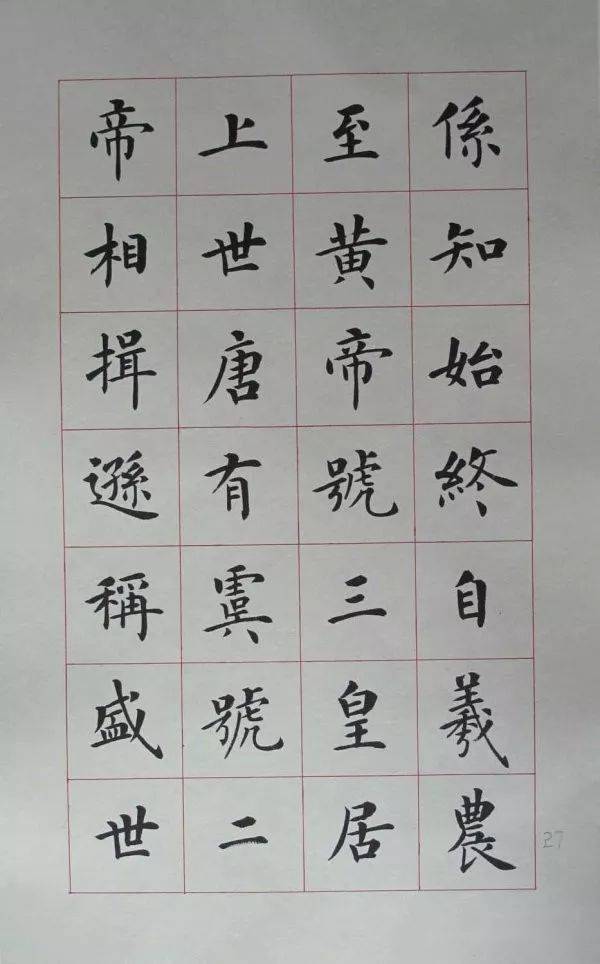 係知始終自羲農
至黄帝號三皇居
上世唐有虞號二
帝相揖遜稱盛世
27